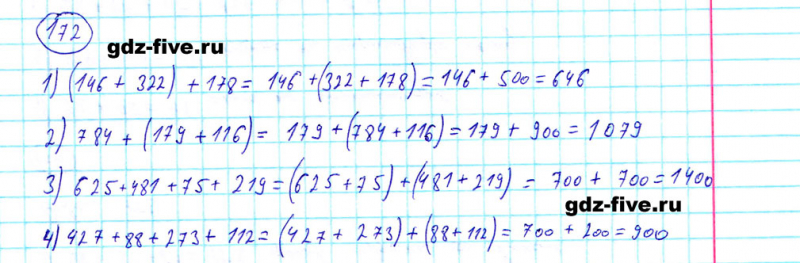 172
gdz-five.ru
1) (146 + 322) + 178 = 146 + (322 + 178) = 146 + 500 = 646
2) 784 + (179 + 116) = 179 + (784 + 116) = 179 + 900 = 1079
3) 625 + 481 + 75 + 219 = (625 + 75) + (481 + 219) = 700 + 700 = 1400
gdz-five.ru
4) 427 + 88 + 273 + 112 = (427 + 273) + (88 + 112) = 700 + 200 = 900